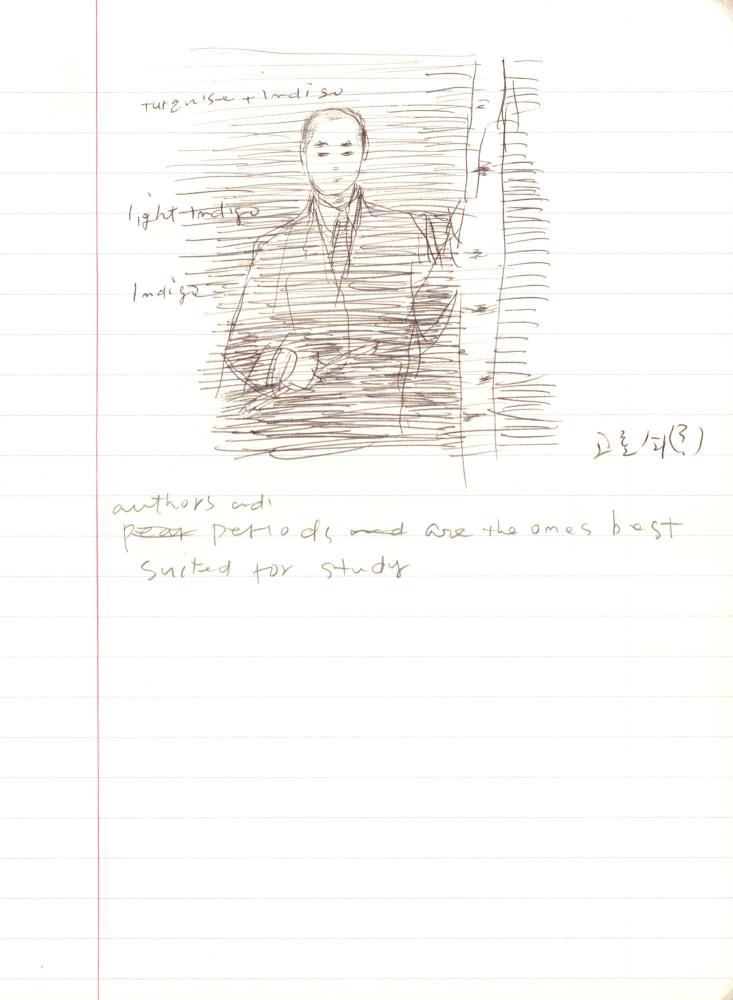 turquise + Indigo
light-Indigo
Indigo
고로쇠(?)
authors and
periods and are the ones best
suited for study